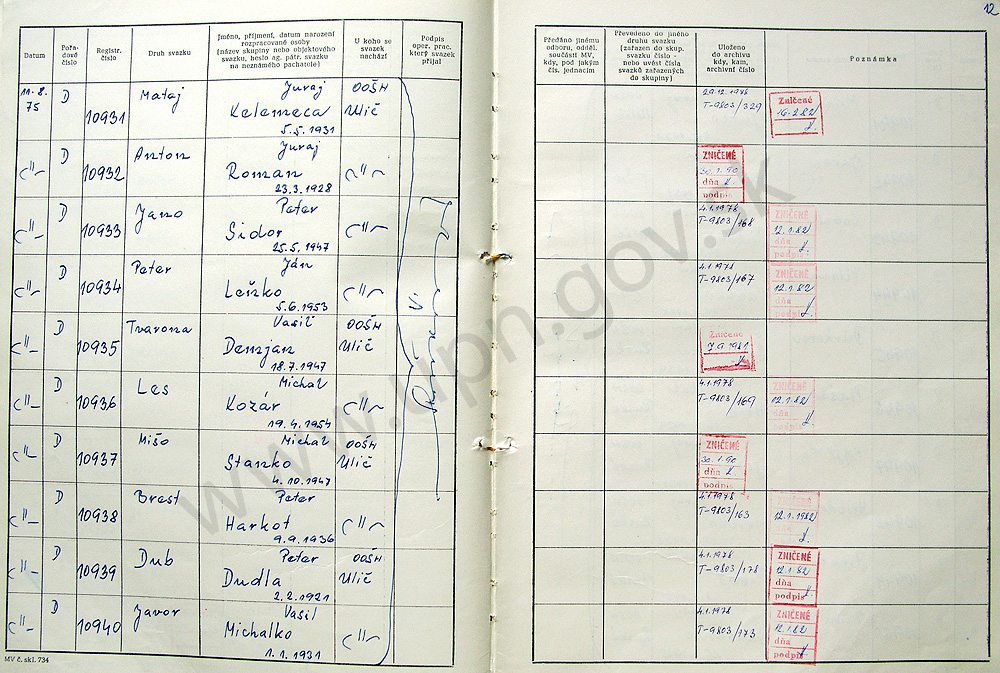 12
Datum
Pořa-
dové
číslo
Registr.
číslo
Druh svazku
Jméno, příjmení, datum narození
rozpracované osoby
(název skupiny nebo objektového
svazku, heslo ag. pátr. svazku
na neznámého pachatele)
U koho se
svazek
nachází
Podpis
oper. prac.
který svazek
přijal
Předáno jinému
odboru, odděl.
součásti MV,
kdy, pod jakým
čís. jednacím
Převedeno do jiného
druhu svazku
(zařazen do skup.
svazku číslo -
nebo uvést čísla
svazků zařazených
do skupiny)
Uloženo
do archivu
kdy, kam,
archivní číslo
Poznámka
11.8.
75
D
10931
Mataj
Juraj
Kelemeca
5.5.1931
OOŠH
Ulič
29.12.1978
T-9803/329
Zničené
16.2.82
D
10932
Anton
Juraj
Roman
23.3.1928
ZNIČENÉ
30.1.90
dňa
podpis
D
10933
Jano
Peter
Sidor
25.5.1947
4.1.1978
T-9803/168
ZNIČENÉ
12.1.82
dňa
podpis
D
10934
Peter
Ján
Leňko
5.6.1953
4.1.1978
T-9803/167
ZNIČENÉ
12.1.82
dňa
podpis
D
10935
Tvarona
Vasiľ
Demjan
18.7.1947
OOŠH
Ulič
Zničené
7.9.1981
D
10936
Les
Michal
Kozár
19.4.1954
4.1.1978
T-9803/169
ZNIČENÉ
12.1.82
dňa
podpis
D
10937
Mišo
Michal
Stanko
4.10.1947
OOŠH
Ulič
ZNIČENÉ
30.1.90
dňa
podpis
D
10938
Brest
Peter
Harkot
9.9.1936
4.1.1978
T-9803/163
ZNIČENÉ
12.1.1982
D
10939
Dub
Peter
Dudla
2.2.1921
OOŠH
Ulič
4.1.1978
T-9803/178
ZNIČENÉ
12.1.82
dňa
podpis
D
10940
Javor
Vasil
Michalko
1.1.1931
4.1.1978
T-9803/173
ZNIČENÉ
12.1.82
dňa
podpis
MV č. skl. 734
www.upn.gov.sk